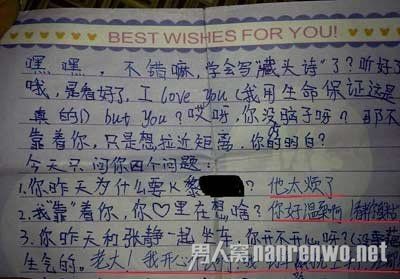 BEST WISHES FOR YOU!
嘿嘿,不错嘛,学会写"藏头诗"了?听好了
哦,是看好了,I love You(我用生命保证这是
真的) but You?哎呀,你没脑子呀?那不
靠着你,只是想拉近距离,你的明白?
今天只问你四个问题:
1.你昨天为什么要K黎?他太烦了
2.我"靠"着你,你♡里在想啥?你好温柔啊!
3.你昨天和张静一起坐车,你开不开心呀?
生气的。老大!我开心
男人窝
nanrenwo.net